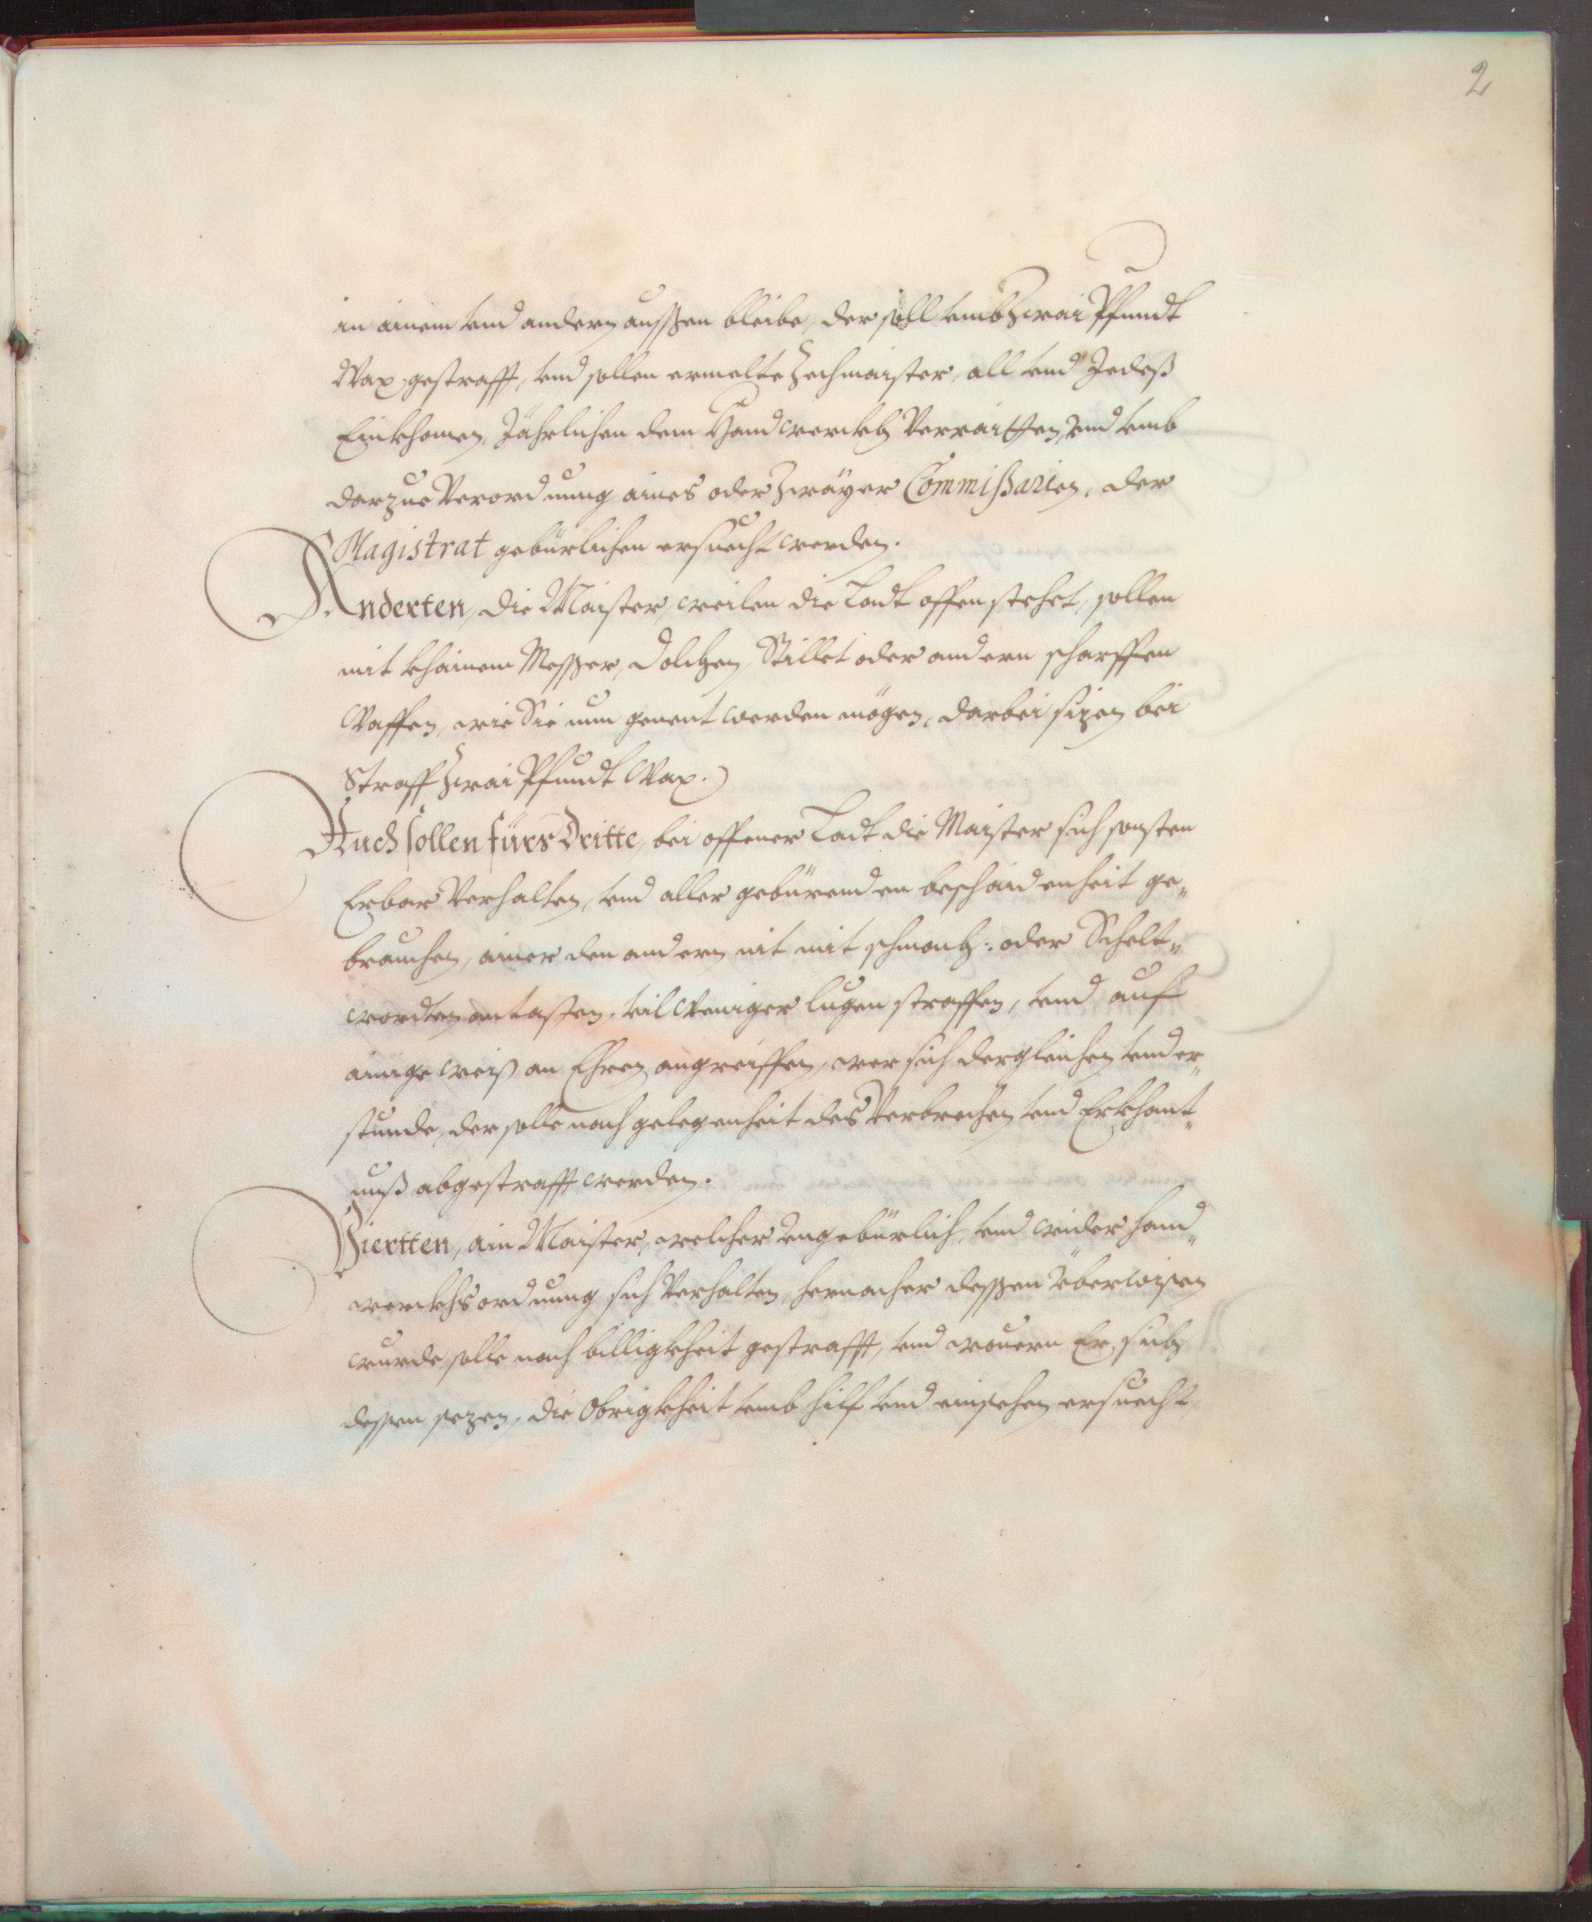 2
in ainem vnd andern aussen bleibe, der soll vmb Zwai Pfundt
Wax gestrafft, vnd sollen ermelte Zechmaister, all vnd Jedeß
Einkhomen, Jährlichen dem Handtwerckh Verraitten, vnd vmb
darzue Verordnung aines oder Zwayer Commißarien, der
Magistrat gebürlichen ersuecht werden.
Anderten, die Maister, weilen die Ladt offen stehet, sollen
mit khainem Messer, Dolchen, Stillet oder andern scharffen
Waffen, wie Sie nun genent werden mögen, darbei sizen bei
Straff Zwai Pfundt Wax.
Auch sollen fürs Dritte, bei offener Ladt die Maister sich sonsten
Erbar Verhalten, vnd aller gebürenden beschaidenheit ge„
brauchen, ainer den andern nit mit schmach: oder Schelt„
wordten antasten, vil Weniger lugen straffen, vnd auf
ainige weiß an Ehren angreiffen, wer sich dergleichen vnder„
stunde, der solle nach gelegenheit des Verbrechen vnd Erkhant„
nuß abgestrafft werden.
Viertten, ain Maister, welcher vngebürlich, vnd wider hand„
werckhs ordnung sich Verhalten, hernacher dessen überwisen
wurde, solle nach billigkheit gestrafft, vnd wouern Er, sich
dessen sezen, die Obrigkheit vmb hilf vnd einsehen ersuecht